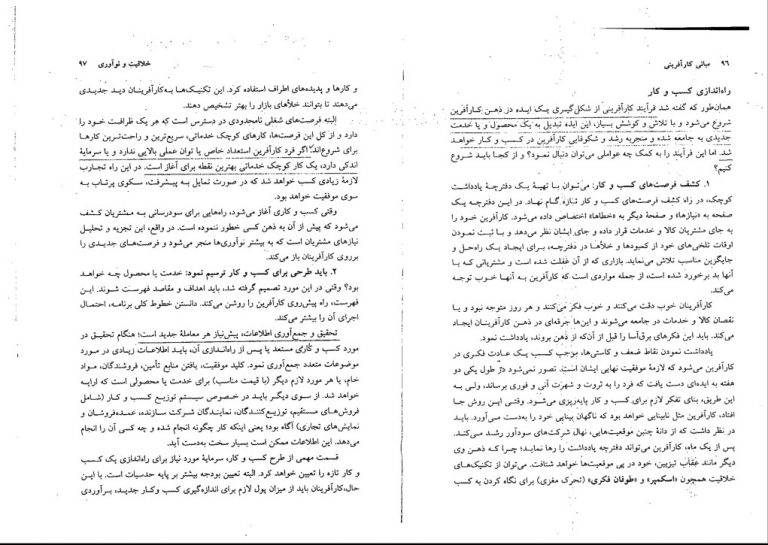 ۹۶ مبانی کارآفرینی
راه‌اندازی کسب و کار
همان‌طور که گفته شد فرآیند کارآفرینی از شکل‌گیری یک ایده در ذهن کارآفرین
شروع می‌شود و با تلاش و کوشش بسیار، این ایده تبدیل به یک محصول و یا خدمت
جدیدی به جامعه شده و منجربه رشد و شکوفایی کارآفرین در کسب و کار خواهد
شد. اما این فرآیند را به کمک چه عواملی می‌توان دنبال نمود؟ و از کجا باید شروع
کنیم؟
۱. کشف فرصت‌های کسب و کار: می‌توان با تهیهٔ یک دفترچهٔ یادداشت
کوچک، در راه کشف فرصت‌های کسب و کار تازه گام نهاد. در این دفترچه یک
صفحه به «نیازها» و صفحهٔ دیگر به «خطاها» اختصاص داده می‌شود. کارآفرین خود را
به جای مشتریان کالا و خدمات قرار داده و جای ایشان نظر می‌دهد و با ثبت نمودن
اوقات تلخی‌های خود از کمبودها و خلأها در دفترچه، برای ایجاد یک راه‌حل و
جایگزین مناسب تلاش می‌نماید. بازاری که از آن غفلت شده است و مشتریانی که با
آنها بد برخورد شده است، از جمله مواردی است که کارآفرین به آنها خوب توجه
می‌کند.
کارآفرینان خوب دقت می‌کنند و خوب فکر می‌کنند و هر روز متوجه نبود و یا
نقصان کالا و خدمات در جامعه می‌شوند و این‌ها جرقه‌ای در ذهن کارآفرینان ایجاد
می‌کند. باید این فکرهای برق‌آسا را قبل از آن‌که از ذهن بروند، یادداشت نمود.
یادداشت نمودن نقاط ضعف و کاستی‌ها، موجب کسب یک عادت فکری در
کارآفرین می‌شود که لازمهٔ موفقیت نهایی ایشان است. تصور نمی‌شود در طول یکی دو
هفته به ایده‌ای دست یافت که فرد را به ثروت و شهرت آنی و فوری برساند، ولی به
این طریق، بنای تفکر لازم برای کسب و کار پایه‌ریزی می‌شود. وقتی این روش جا
افتاد، کارآفرین مثل نابینایی خواهد بود که ناگهان بینایی خود را به‌دست می‌آورد. باید
در نظر داشت که از دانهٔ چنین موقعیت‌هایی، نهال شرکت‌های سودآور رشد می‌کند.
پس از یک ماه، کارآفرین می‌تواند دفترچه یادداشت را رها نماید؛ چرا که ذهن وی
دیگر مانند عقاب تیزبین، خود در پی موقعیت‌ها خواهد شتافت. می‌توان از تکنیک‌های
خلاقیت همچون «اسکمپر» و «طوفان فکری» (تحرک مغزی) برای نگاه کردن به کسب
خلاقیت و نوآوری ۹۷
و کارها و پدیده‌های اطراف استفاده کرد. این تکنیک‌ها به‌کارآفرینان دید جدیدی
می‌دهند تا بتوانند خلأهای بازار را بهتر تشخیص دهند.
البته فرصت‌های شغلی نامحدودی در دسترس است که هر یک ظرافت خود را
دارد و از کل این فرصت‌ها، کارهای کوچک خدماتی، سریع‌ترین و راحت‌ترین کارها
برای شروع‌اند. اگر فرد کارآفرین استعداد خاص یا توان عملی بالایی ندارد و یا سرمایهٔ
اندکی دارد، یک کار کوچک خدماتی بهترین نقطه برای آغاز است. در این راه تجارب
لازمهٔ زیادی کسب خواهد شد که در صورت تمایل به پیشرفت، سکوی پرتاب به
سوی موفقیت خواهد بود.
وقتی کسب و کاری آغاز می‌شود، راه‌هایی برای سودرسانی به مشتریان کشف
می‌شود که پیش از آن به ذهن کسی خطور ننموده است. در واقع، این تجزیه و تحلیل
نیازهای مشتریان است که به بیشتر نوآوری‌ها منجر می‌شود و فرصت‌های جدیدی را
برروی کارآفرینان باز می‌کند.
۲. باید طرحی برای کسب و کار ترسیم نمود: خدمت یا محصول چه خواهد
بود؟ وقتی در این مورد تصمیم گرفته شد، باید اهداف و مقاصد فهرست شوند. این
فهرست، راه پیش‌روی کارآفرین را روشن می‌کند. دانستن خطوط کلی برنامه، احتمال
اجرای آن را بیشتر می‌کند.
تحقیق و جمع‌آوری اطلاعات، پیش‌نیاز هر معاملهٔ جدید است؛ هنگام تحقیق در
مورد کسب و کاری مستعد یا پس از راه‌اندازی آن، باید اطلاعات زیادی در مورد
موضوعات متعدد جمع‌آوری نمود. کلید موفقیت، یافتن منابع تأمین، فروشندگان، مواد
خام، یا هر مورد لازم دیگر (با قیمت مناسب) برای خدمت یا محصولی است که ارایه
خواهد شد. از سوی دیگر باید در خصوص سیستم توزیع کسب و کار (شامل
فروش‌های مستقیم، توزیع‌کنندگان، نمایندگان شرکت سازنده، عمده‌فروشان و
نمایش‌های تجاری) آگاه بود؛ یعنی اینکه کار چگونه انجام شده و چه کسی آن را انجام
می‌دهد. این اطلاعات ممکن است بسیار سخت به‌دست آید.
قسمت مهمی از طرح کسب و کار، سرمایه مورد نیاز برای راه‌اندازی یک کسب
و کار تازه را تعیین خواهد کرد. البته تعیین بودجه بیشتر بر پایه حدسیات است. با این
حال،کارآفرینان باید از میزان پول لازم برای اندازه‌گیری کسب وکار جدید، برآوردی